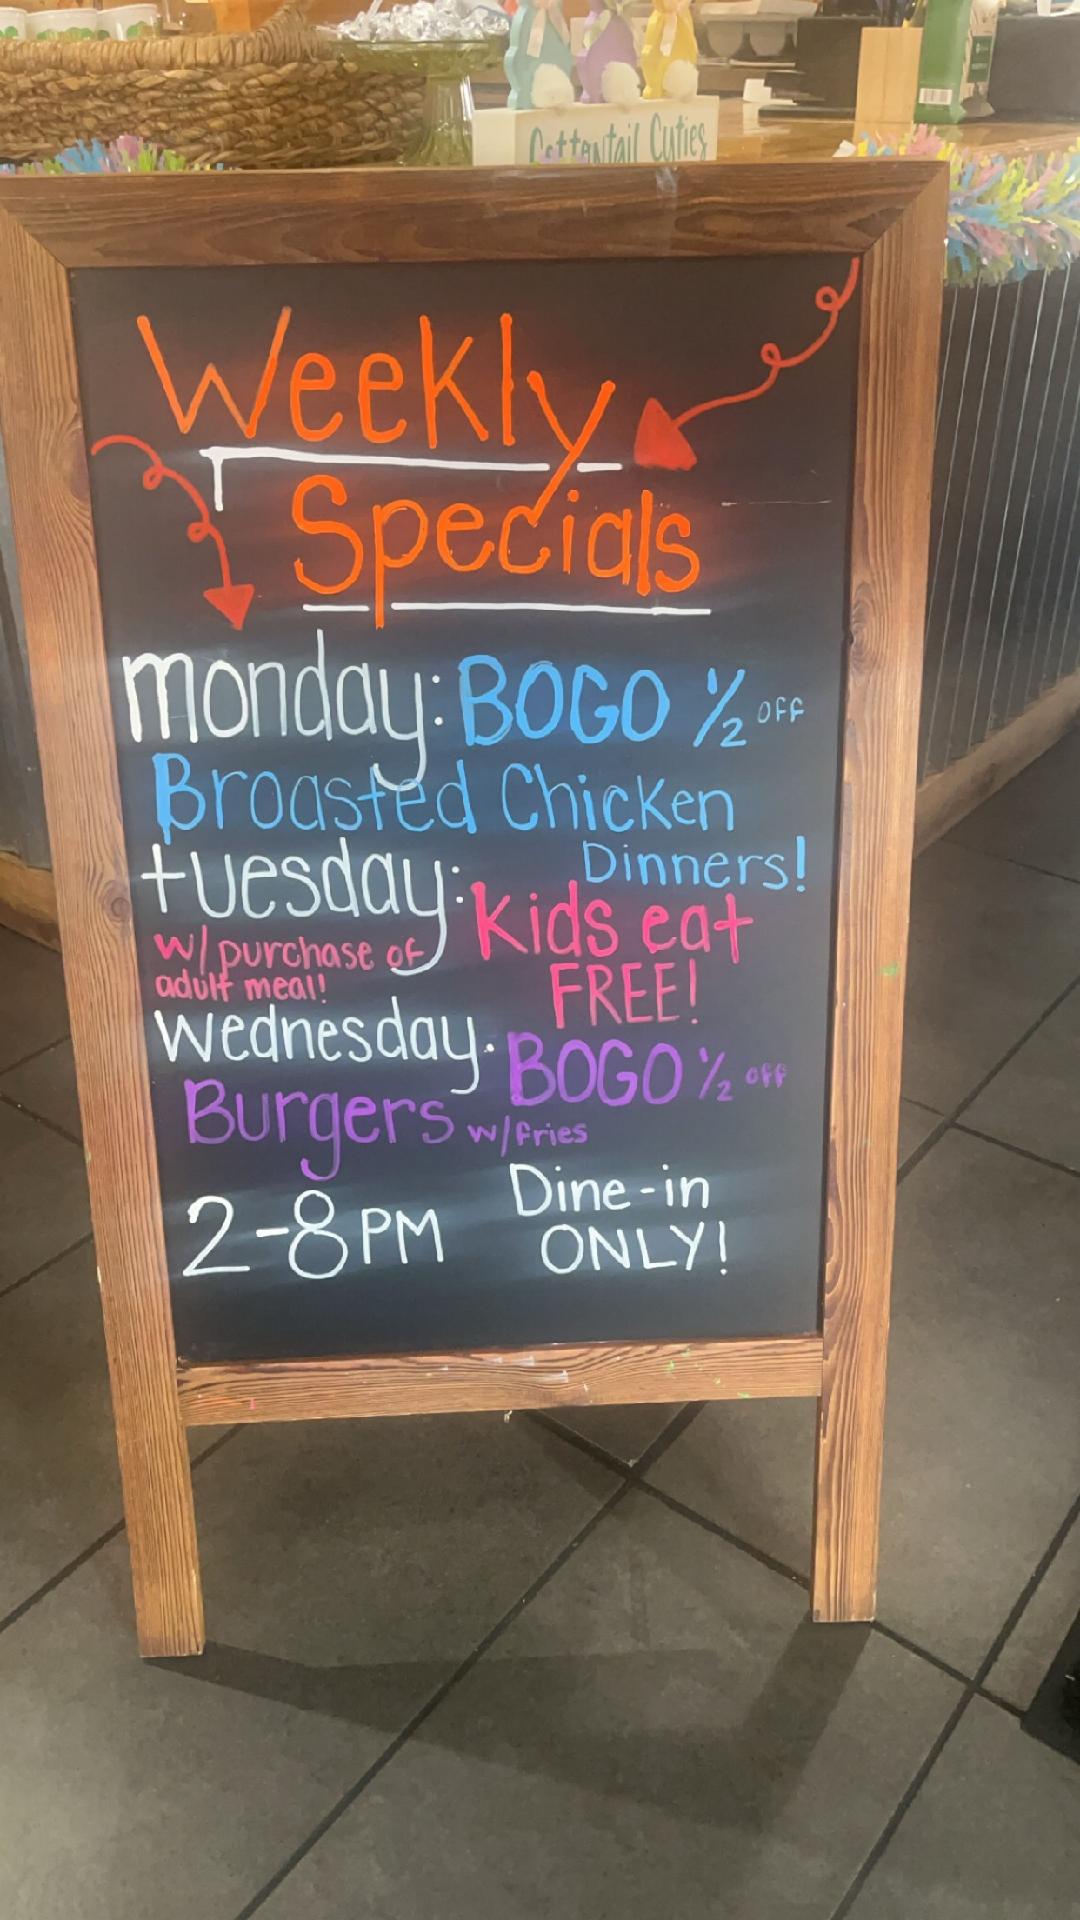 Cottontail Cuties
Weekly
Specials
monday: BOGO 1/2 OFF
Broasted Chicken
Dinners!
tuesday: Kids eat
FREE!
w/ purchase of
adult meal!
wednesday: BOGO 1/2 OFF
Burgers w/fries
2-8 PM Dine-in
ONLY!